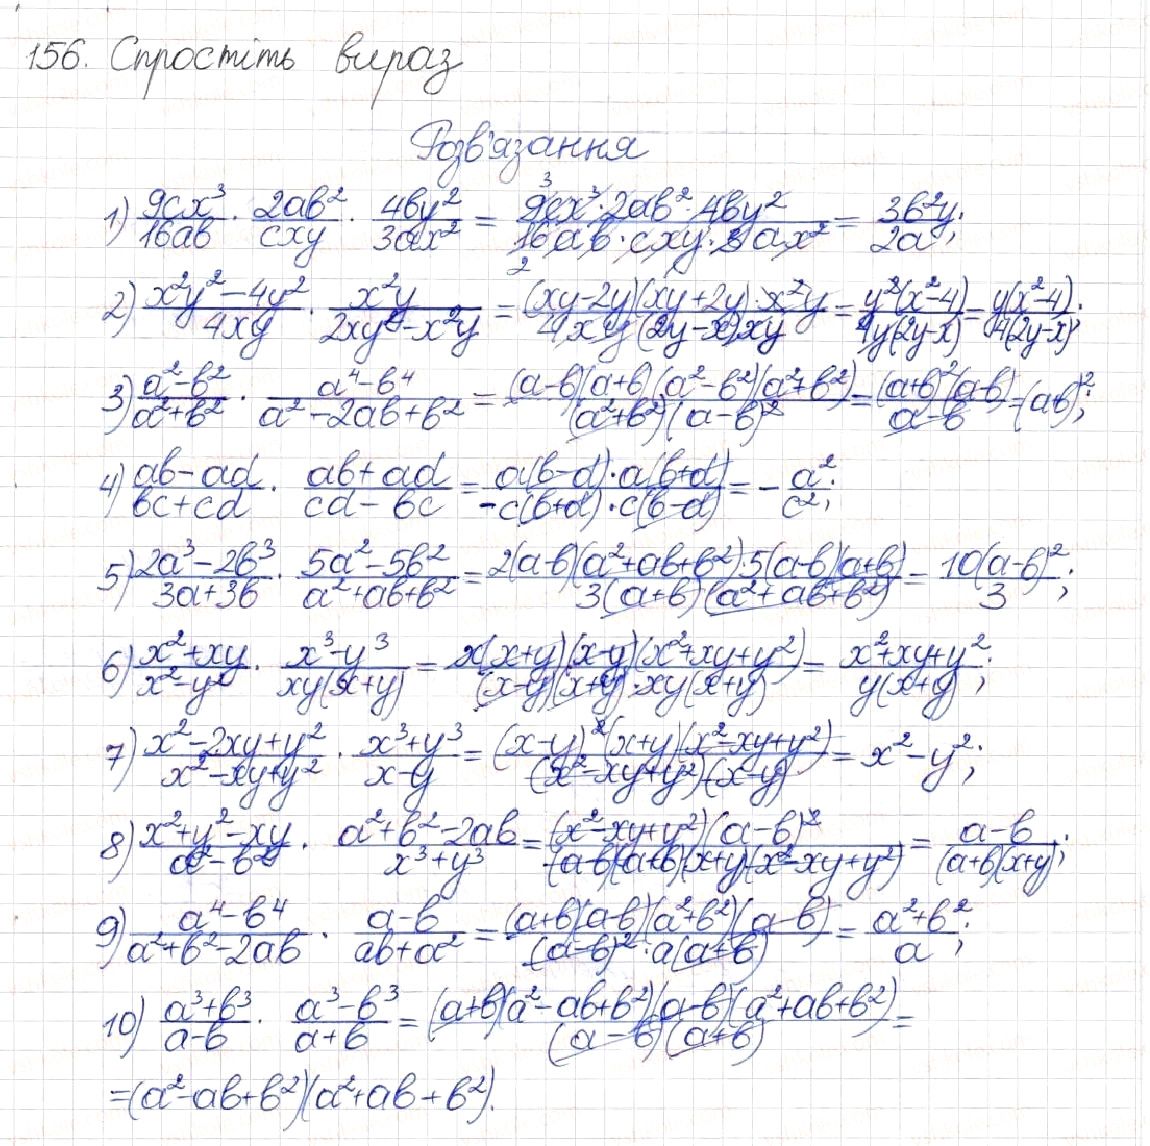 156. Спростіть вираз
Розв'язання
1) 9cx³/16ab · 2ab²/cxy · 4by²/3ax² = 9cx³·2ab²·4by²/16ab·cxy·3ax² = 3b²y/2a;
2) x²y²-4y²/4xy · x²y/2xy²-x²y = (xy-2y)(xy+2y)·x²y/4xy(2y-x)xy = y²(x²-4)/4y(2y-x) = y(x²-4)/4(2y-x);
3) a²-b²/a²+b² · a⁴-b⁴/a²-2ab+b² = (a-b)(a+b)(a²-b²)(a²+b²)/(a²+b²)(a-b)² = (a+b)²(a-b)/a-b = (a+b)²;
4) ab-ad/bc+cd · ab+ad/cd-bc = a(b-d)·a(b+d)/-c(b+d)·c(b-d) = -a²/c²;
5) 2a³-2b³/3a+3b · 5a²-5b²/a²+ab+b² = 2(a-b)(a²+ab+b²)·5(a-b)(a+b)/3(a+b)(a²+ab+b²) = 10(a-b)²/3;
6) x²+xy/x²-y² · x³-y³/xy(x+y) = x(x+y)(x-y)(x²+xy+y²)/(x-y)(x+y)·xy(x+y) = x²+xy+y²/y(x+y);
7) x²-2xy+y²/x²-xy+y² · x³+y³/x-y = (x-y)²(x+y)(x²-xy+y²)/(x²-xy+y²)(x-y) = x²-y²;
8) x²+y²-xy/a²-b² · a²+b²-2ab/x³+y³ = (x²-xy+y²)(a-b)²/(a-b)(a+b)(x+y)(x²-xy+y²) = a-b/(a+b)(x+y);
9) a⁴-b⁴/a²+b²-2ab · a-b/ab+a² = (a+b)(a-b)(a²+b²)(a-b)/(a-b)²·a(a+b) = a²+b²/a;
10) a³+b³/a-b · a³-b³/a+b = (a+b)(a²-ab+b²)(a-b)(a²+ab+b²)/(a-b)(a+b) =
=(a²-ab+b²)(a²+ab+b²).